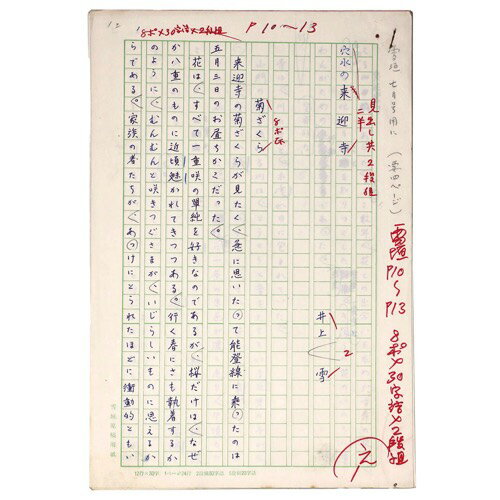 8ポ×30字詰×2段組
P10〜13
雪垣 七月号用に
(第四ページ)
雪垣
P10
〜
P13
8ポ×30字詰×2段組
見出し共2段組
穴水の来迎寺
井上 雪
菊ざくら
来迎寺の菊ざくらが見たく、急に思いたって能登線に乗ったのは
五月三日のお昼ちかくだった。
花はすべて一重咲の単純を好きなのであるが、桜だけは、なぜ
か八重のものに近頃魅かれてきつつある。行く春にさも執着するか
のように、むんむんと咲きつぐさまが、いじらしいものに思えるか
らである。家族の者たちが、あっけにとられたほどに、衝動的ともい